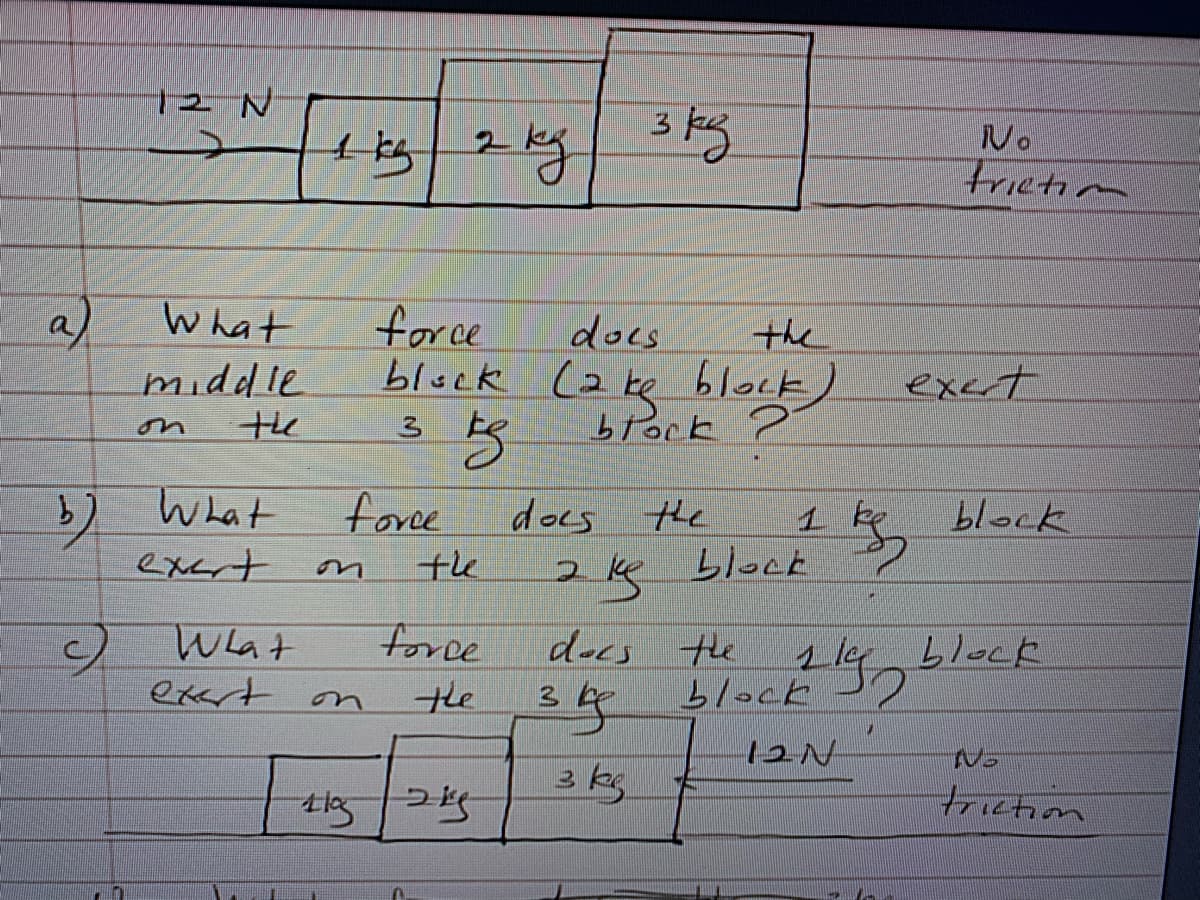 12 N
1 kg 2 kg 3 kg
No
friction
a) What force does the
middle block (2 kg block) exert
on the 3 kg block ?
b) What force does the 1 kg block
exert on the 2 kg block ?
c) What force does the 1 kg block
exert on the 3 kg block ?
12N
1kg 2 kg 3 kg
No
friction